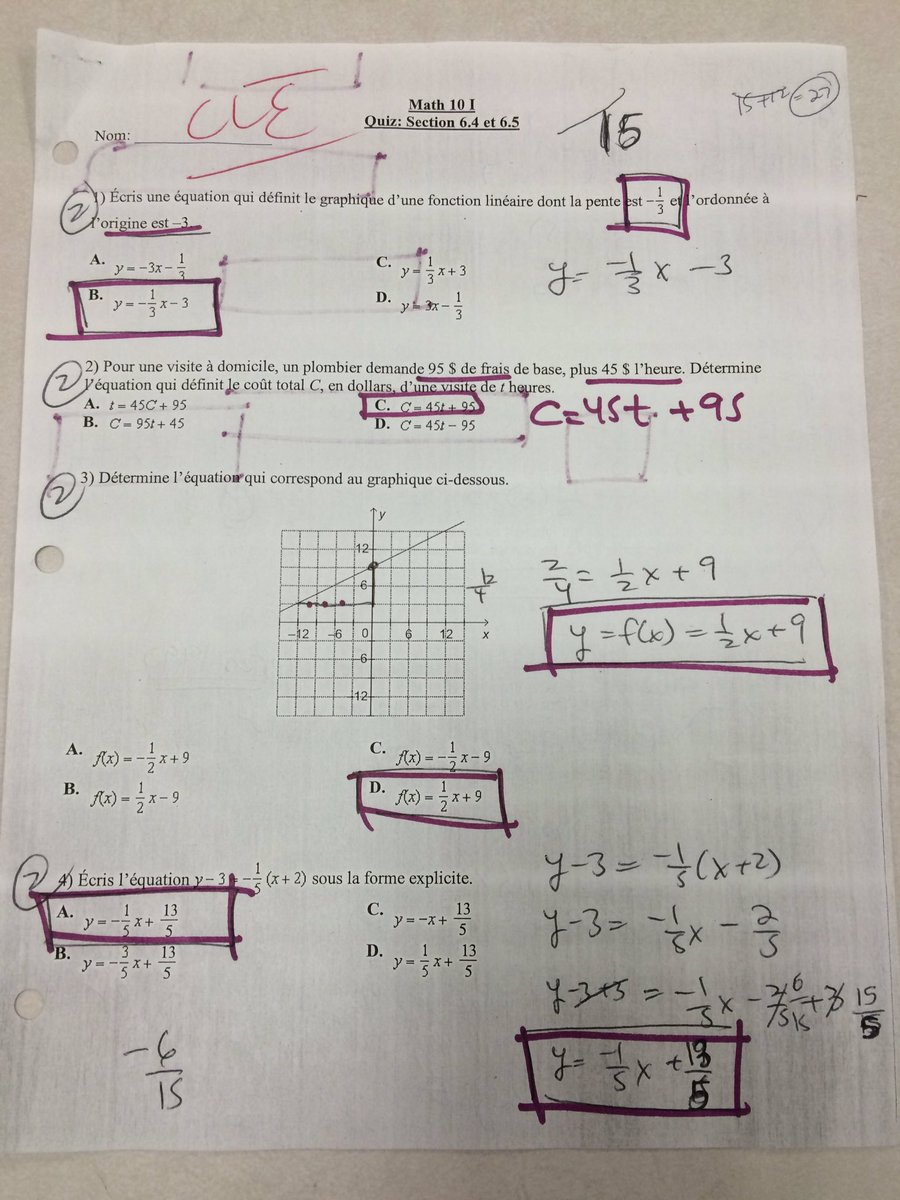 Math 10 I
Quiz: Section 6.4 et 6.5
15+12 = 27
15
Nom: CLÉ
② 1) Écris une équation qui définit le graphique d'une fonction linéaire dont la pente est –1/3 et l'ordonnée à
l'origine est –3.
A. y = –3x – 1/3
C. y = 1/3 x + 3
B. y = –1/3 x – 3
D. y = 3x – 1/3
y = -1/3 x - 3
② 2) Pour une visite à domicile, un plombier demande 95 $ de frais de base, plus 45 $ l'heure. Détermine
l'équation qui définit le coût total C, en dollars, d'une visite de t heures.
A. t = 45C + 95
C. C = 45t + 95
B. C = 95t + 45
D. C = 45t – 95
C = 45t + 95
② 3) Détermine l'équation qui correspond au graphique ci-dessous.
y
12
6
–12 –6 0 6 12 x
–6
–12
12/4
2/4 = 1/2 x + 9
y = f(x) = 1/2 x + 9
A. f(x) = –1/2 x + 9
C. f(x) = –1/2 x – 9
B. f(x) = 1/2 x – 9
D. f(x) = 1/2 x + 9
② 4) Écris l'équation y – 3 = –1/5 (x + 2) sous la forme explicite.
A. y = –1/5 x + 13/5
C. y = –x + 13/5
B. y = –3/5 x + 13/5
D. y = 1/5 x + 13/5
y-3 = -1/5 (x+2)
y-3 = -1/5 x - 2/5
y-3+3 = -1/5 x 15/5
y = -1/5 x + 13/5
-6/15